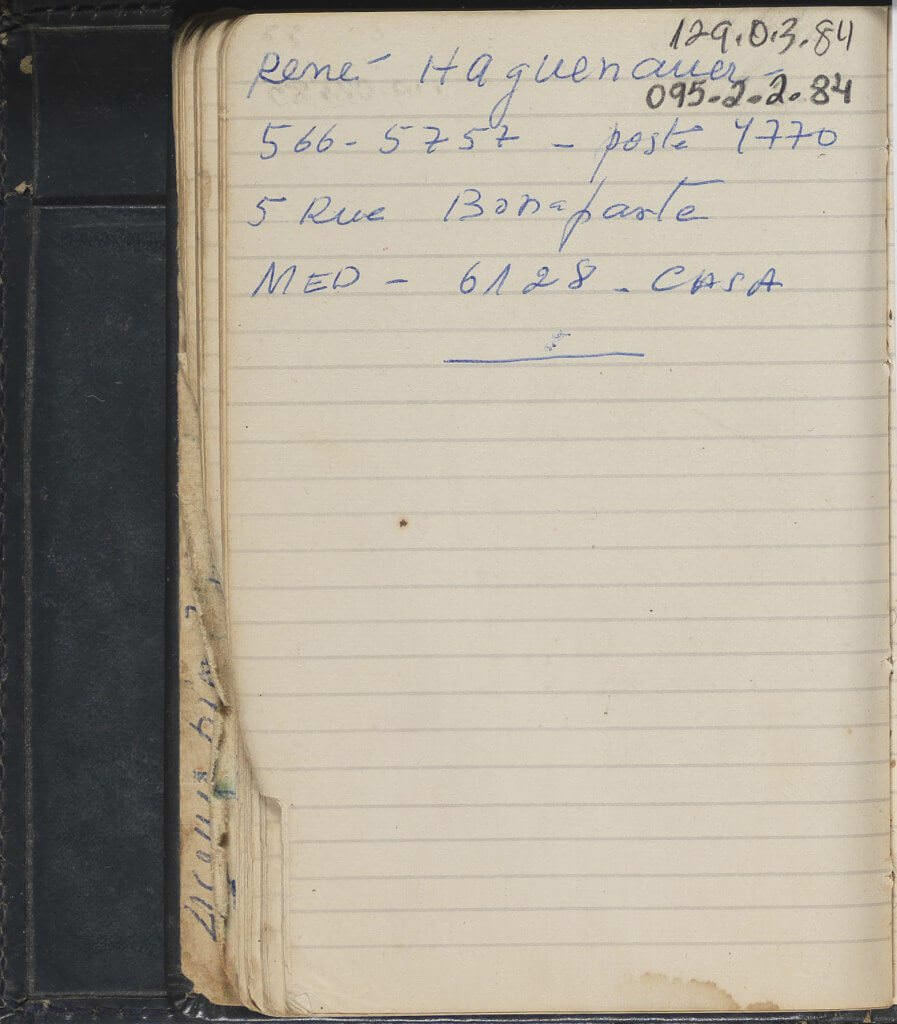 129.0.3.84
René Haguenauer -
095-2-2-84
566-5757 - poste 4770
5 Rue Bonaparte
MED - 6128 - CASA